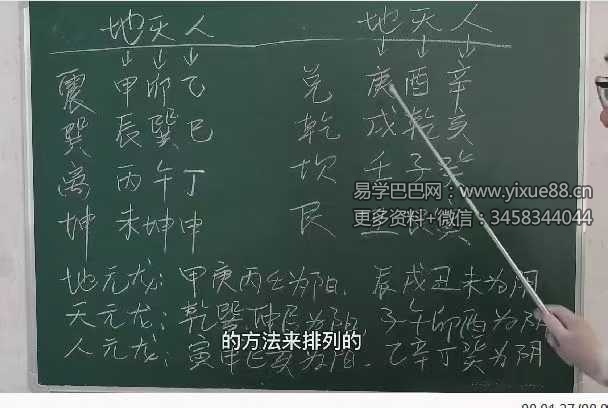 地天人 地天人
震 甲卯乙 兑 庚酉辛
巽 辰巽巳 乾 戌乾亥
离 丙午丁 坎 壬子癸
坤 未坤申 艮
易学巴巴网：www.yixue88.cn
更多资料+微信：3458344044
地元龙：甲庚丙壬为阳、辰戌丑未为阴
天元龙：乾巽坤艮为阳、子午卯酉为阴
的方法来排列的
人元龙：寅申巳亥为阳、乙辛丁癸为阴